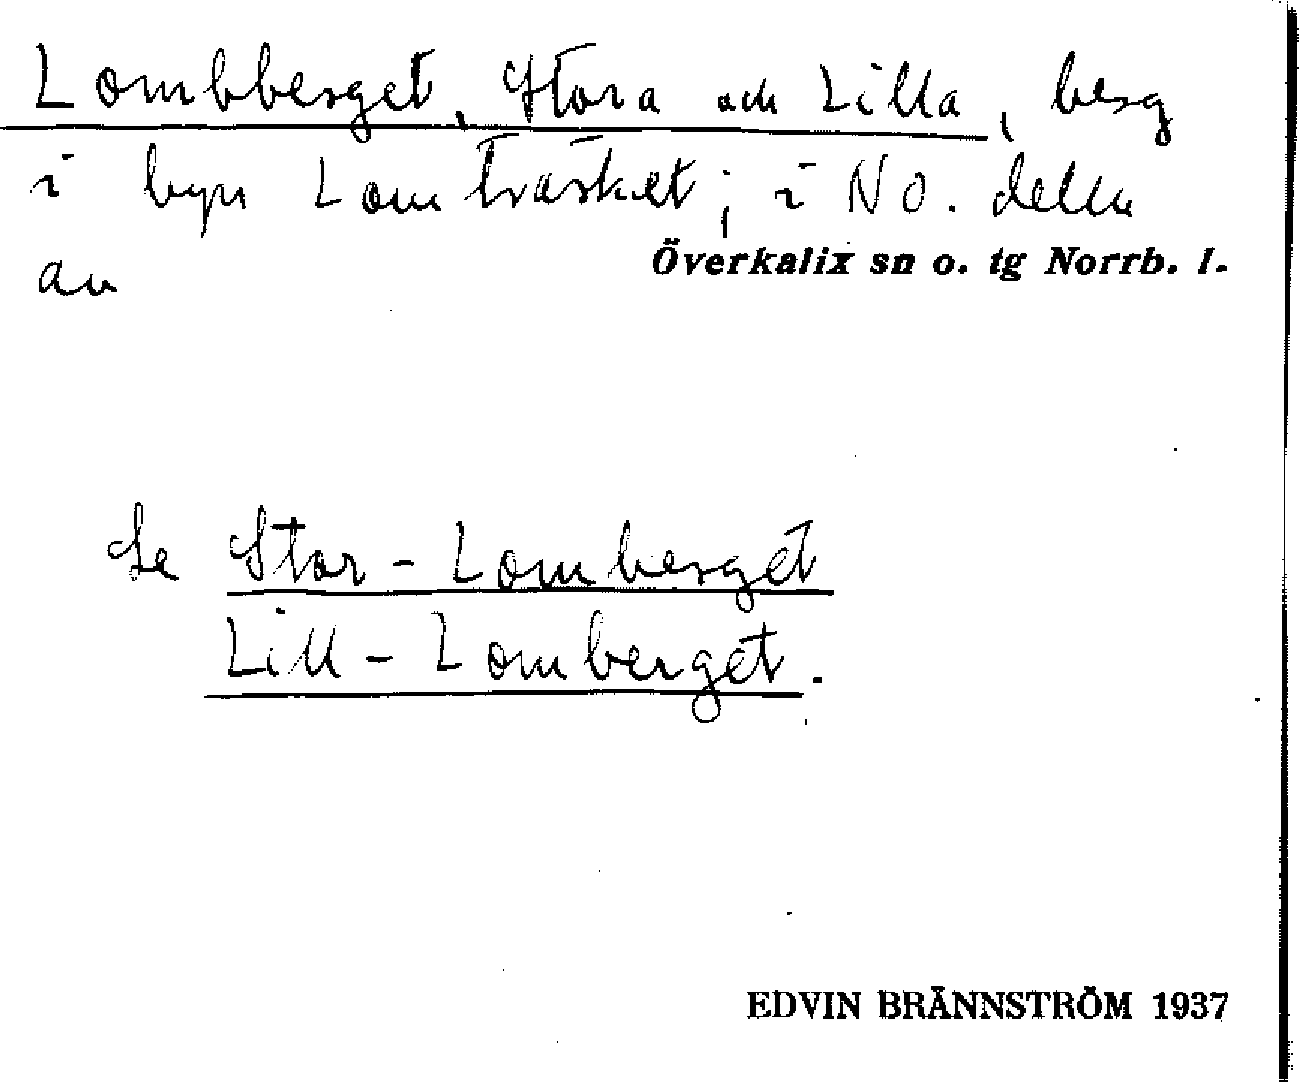 Lombberget, Stora och Lilla, berg
i byn Lomträsket; i NO. delen
av
Överkalix sn o. tg Norrb. l.
Se Stor-Lomberget
Lill-Lomberget.
EDVIN BRÄNNSTRÖM 1937